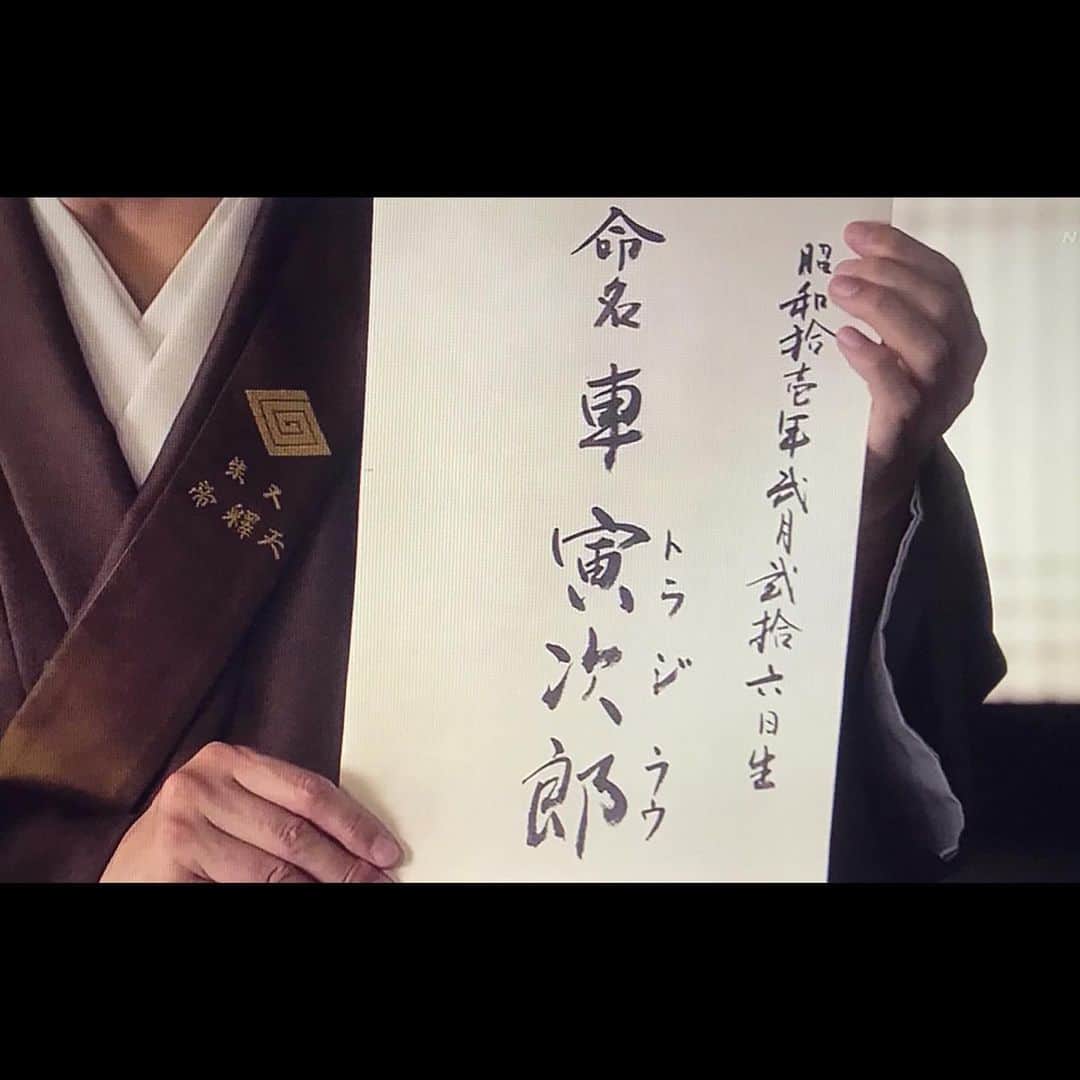 昭和拾壱年弐月弐拾六日生
命名 車 寅次郎
トラジラウ
柴又
帝釋天
N